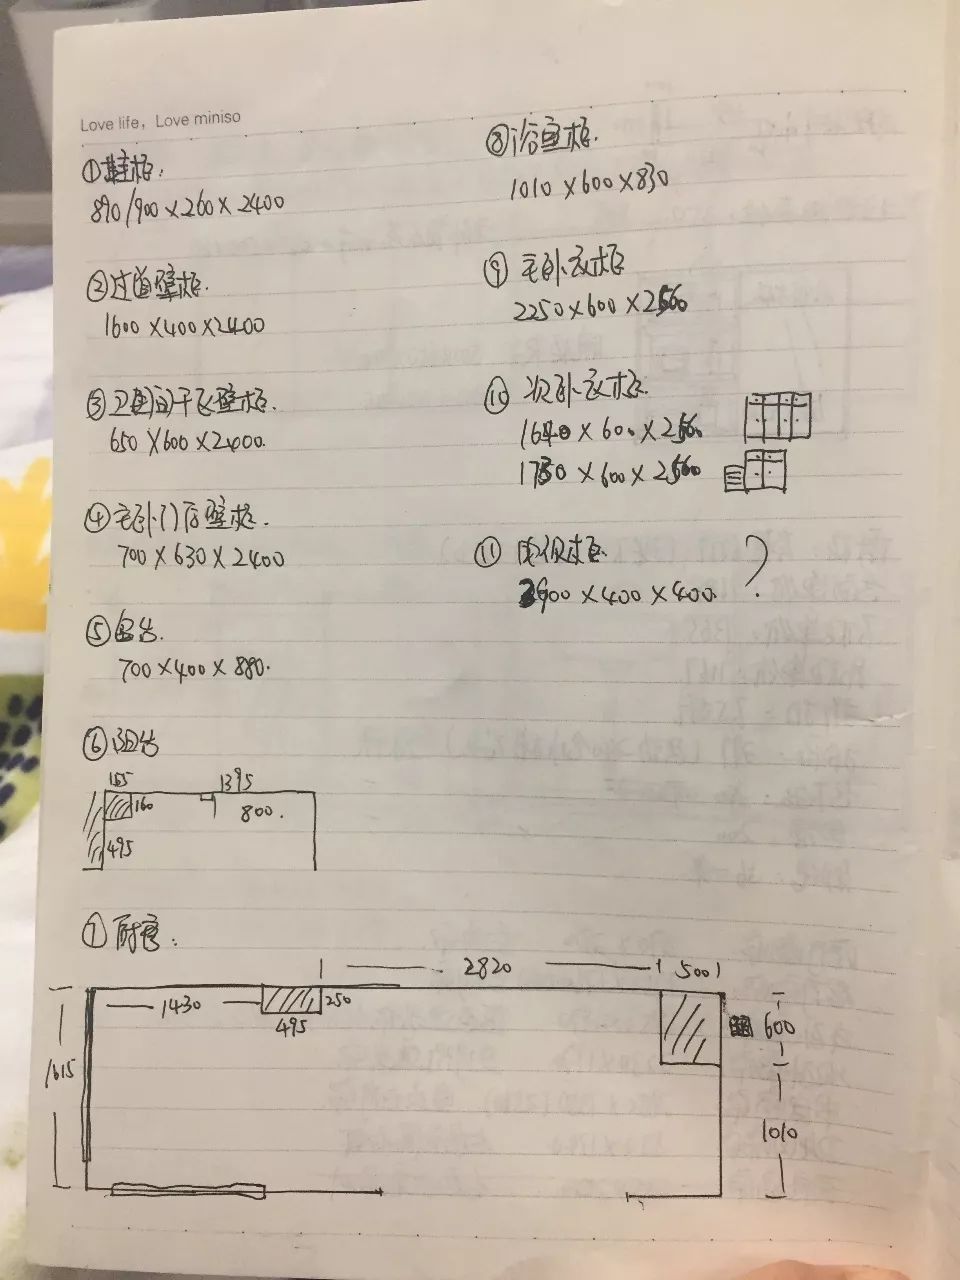 Love life, Love miniso
①鞋柜:
890/900×260×2400
②过道壁柜.
1600×400×2400
③卫生间干区壁柜.
650×600×2400.
④主卧门后壁柜.
700×630×2400
⑤窗台.
700×400×880.
⑥阳台
165
160
495
1395
800.
⑦厨房:
2820
500
1430
250
495
600
1615
1010
⑧浴室柜.
1010×600×830
⑨主卧衣柜
2250×600×2560
⑩次卧衣柜.
1640×600×2560
1750×600×2560
⑪电视柜
3900×400×400.
?